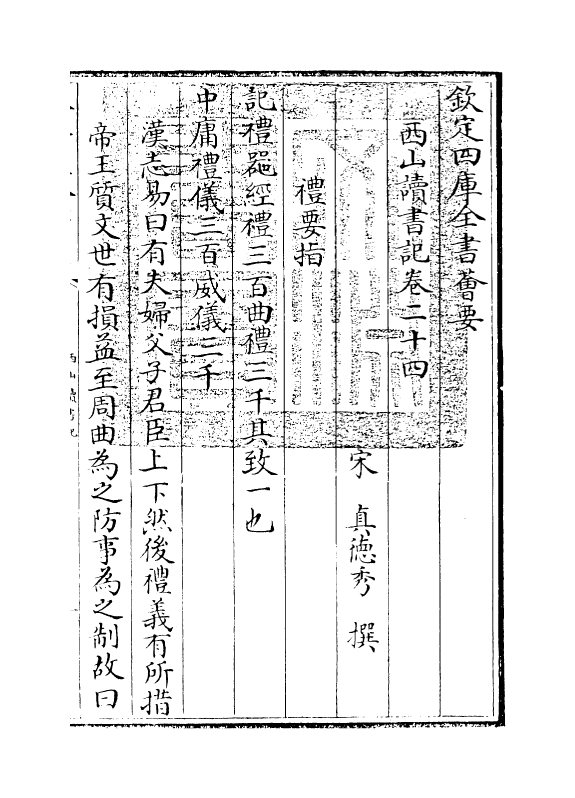 欽定四庫全書薈要
西山讀書記卷二十四
宋　真德秀　撰
禮要指
記禮噐經禮三百曲禮三千其致一也
中庸禮儀三百威儀三千
漢志易曰有夫婦父子君臣上下然後禮義有所措
帝王質文世有損益至周曲為之防事為之制故曰
西山讀書記